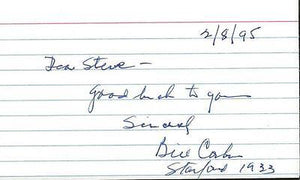 2/8/95
Dear Steve —
Good luck to you
Sincerely
Bill
Stanford 1933